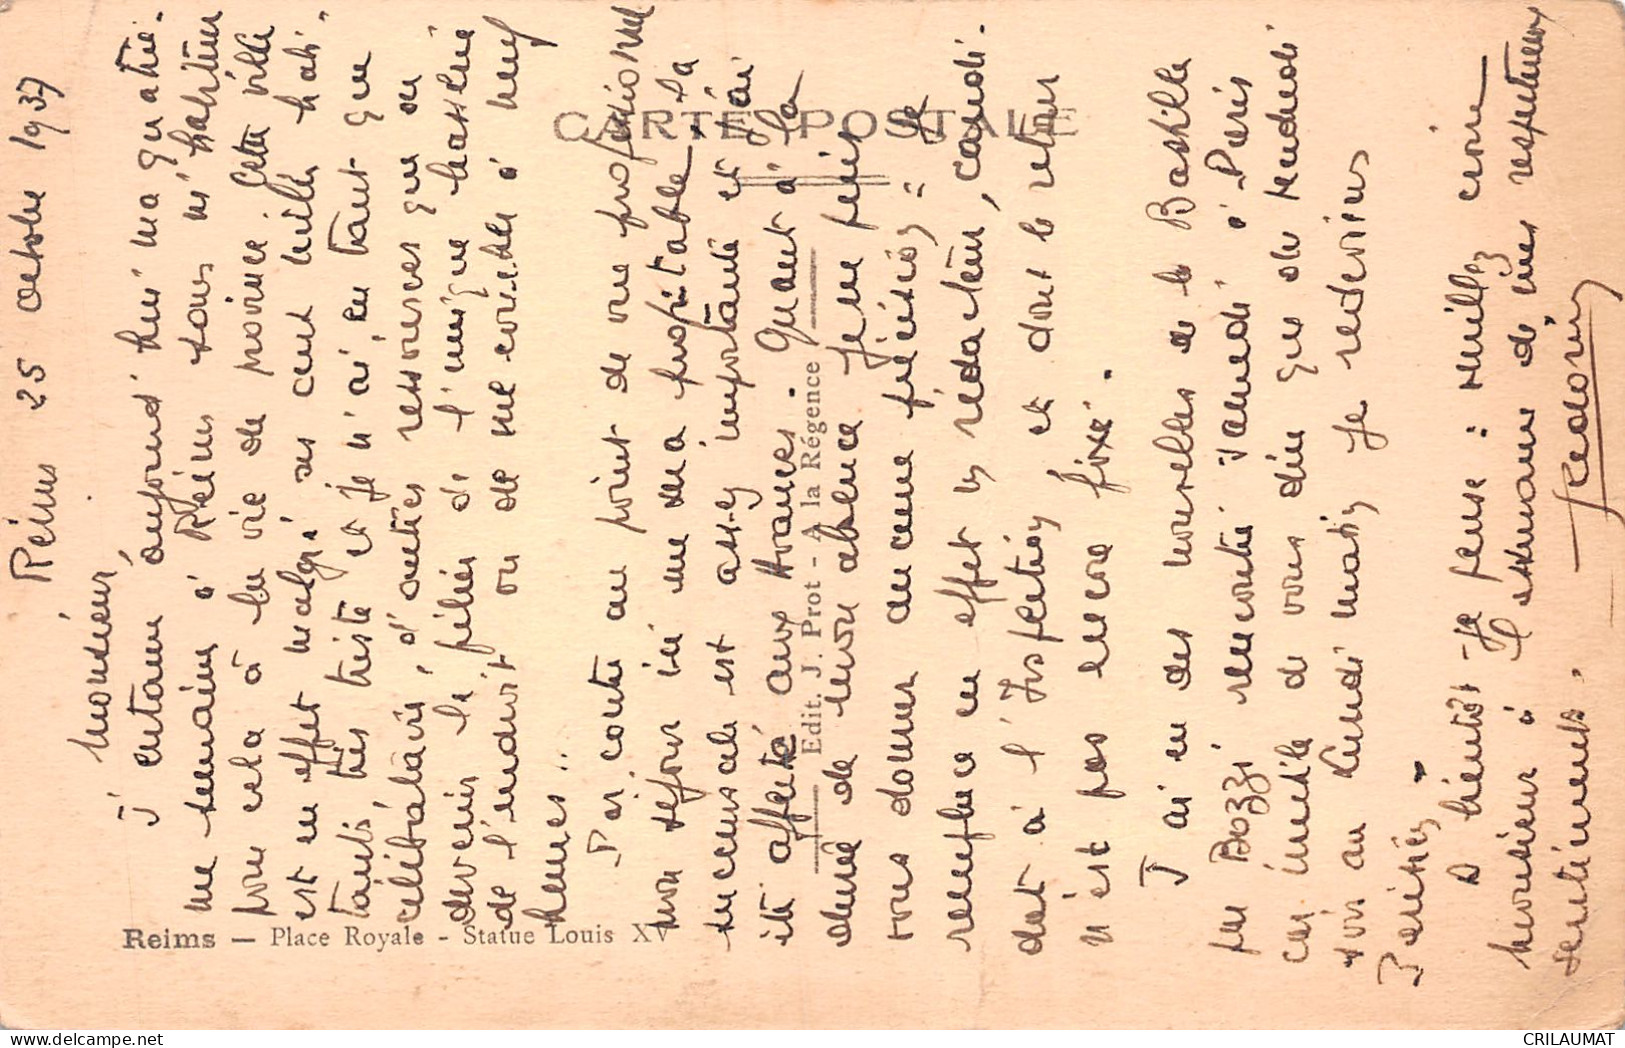 Reims 25 octobre 1937
Monsieur,
J'entame aujourd'hui ma quatriè-
me semaine à Reims sans m'habituer
pour cela à la vie de province. Cette ville
est en effet malgré ses cent mille habi-
tants très triste et je n'ai, en tant que
célibataire, d'autres ressources que ou
devenir le pilier de l'unique brasserie
de l'endroit ou de me coucher à neuf
heures...
Par contre au point de vue professionnel
mon séjour ici me sera profitable. La
succursale est assez importante et j'ai
été affecté aux Avances. Quant à la
durée de mon absence je ne puis
vous donner aucune précision : je
remplace en effet un rédacteur, candi-
dat à l'Inspection et dont le retour
n'est pas encore fixé.
J'ai eu des nouvelles de la Bastille
par Bozzi rencontré samedi à Paris
car inutile de vous dire que du samedi
soir au lundi matin je redeviens
Parisien.
A bientôt je pense : veuillez croire
Monsieur à l'assurance de mes respectueux
sentiments.
CARTE POSTALE
Edit. J. Prot - A la Régence
Reims — Place Royale - Statue Louis XV
CRILAUMAT